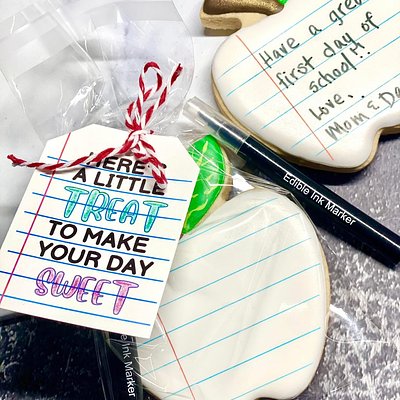 Have a great
first day of
school!!
Love,
Mom & Dad
Edible Ink Marker
HERE'S
A LITTLE
TREAT
TO MAKE
YOUR DAY
SWEET
Ink Marker